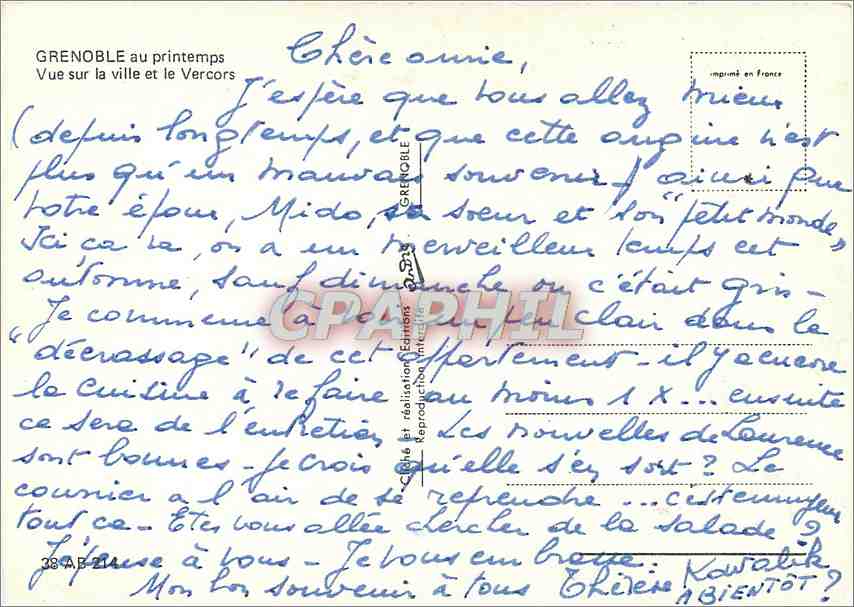 GRENOBLE au printemps
Vue sur la ville et le Vercors
imprimé en France
Chère amie,
J'espère que vous allez mieux
(depuis longtemps, et que cette angine n'est
plus qu'un mauvais souvenir) ainsi que
votre époux, Mido, sa soeur et son "petit monde"
Ici ça va, on a un merveilleux temps cet
automne, sauf dimanche où c'était gris -
Je commence à voir un peu clair dans le
"décrassage" de cet appartement - il y a encore
la cuisine à refaire au moins 1 X ... ensuite
ce sera de l'entretien - Les nouvelles de Laurence
sont bonnes - je crois qu'elle s'en sort ? Le
courrier a l'air de se reprendre ... c'est ennuyeux
tout ça - Etes vous allée chercher de la salade ?
Je pense à vous - Je vous embrasse.
Mon bon souvenir à tous Thérèse Kowalik
A BIENTÔT ?
38 AB 214
Cliché et réalisation Editions André GRENOBLE
Reproduction interdite
CPAPHIL